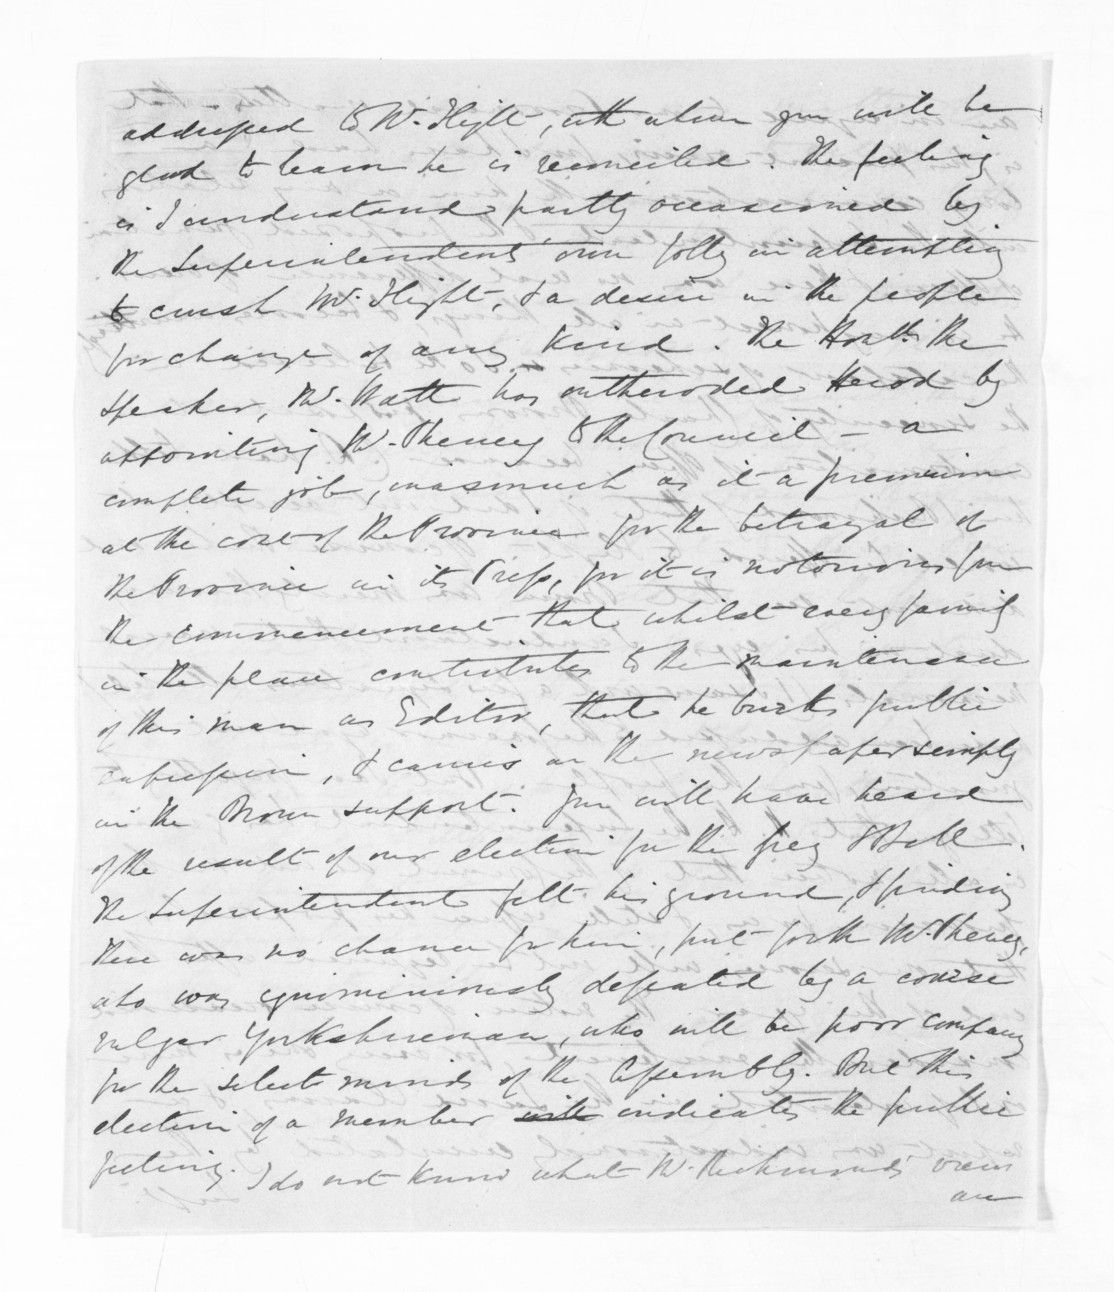 addressed to Mr. Flight, with whom you will be
glad to learn he is reconciled. The feeling
is I understand partly occasioned by
the Superintendents' own folly in attempting
to crush Mr. Flight, & a desire in the people
for change of any kind. The Honble. the
Speaker, Mr. Watt has outheroded Herod by
appointing Mr. Pheney to the Council – a
complete job, inasmuch as it a premium
at the cost of the Province for the betrayal of
the Province in its Press, for it is notorious from
the commencement that whilst every family
in the place contributes to the maintenance
of this man as Editor, that he burks public
expression, & carries on the newspaper simply
in the Brown support. You will have heard
of the result of our election for the Grey & Bell.
The Superintendent felt his ground, & finding
there was no chance for him, put forth Mr. Pheney,
who was ignominiously defeated by a coarse
vulgar Yorkshireman, who will be poor company
for the select minds of the Assembly. But this
election of a member indicates the public
feeling. I do not know what Mr. Richmond's views
are